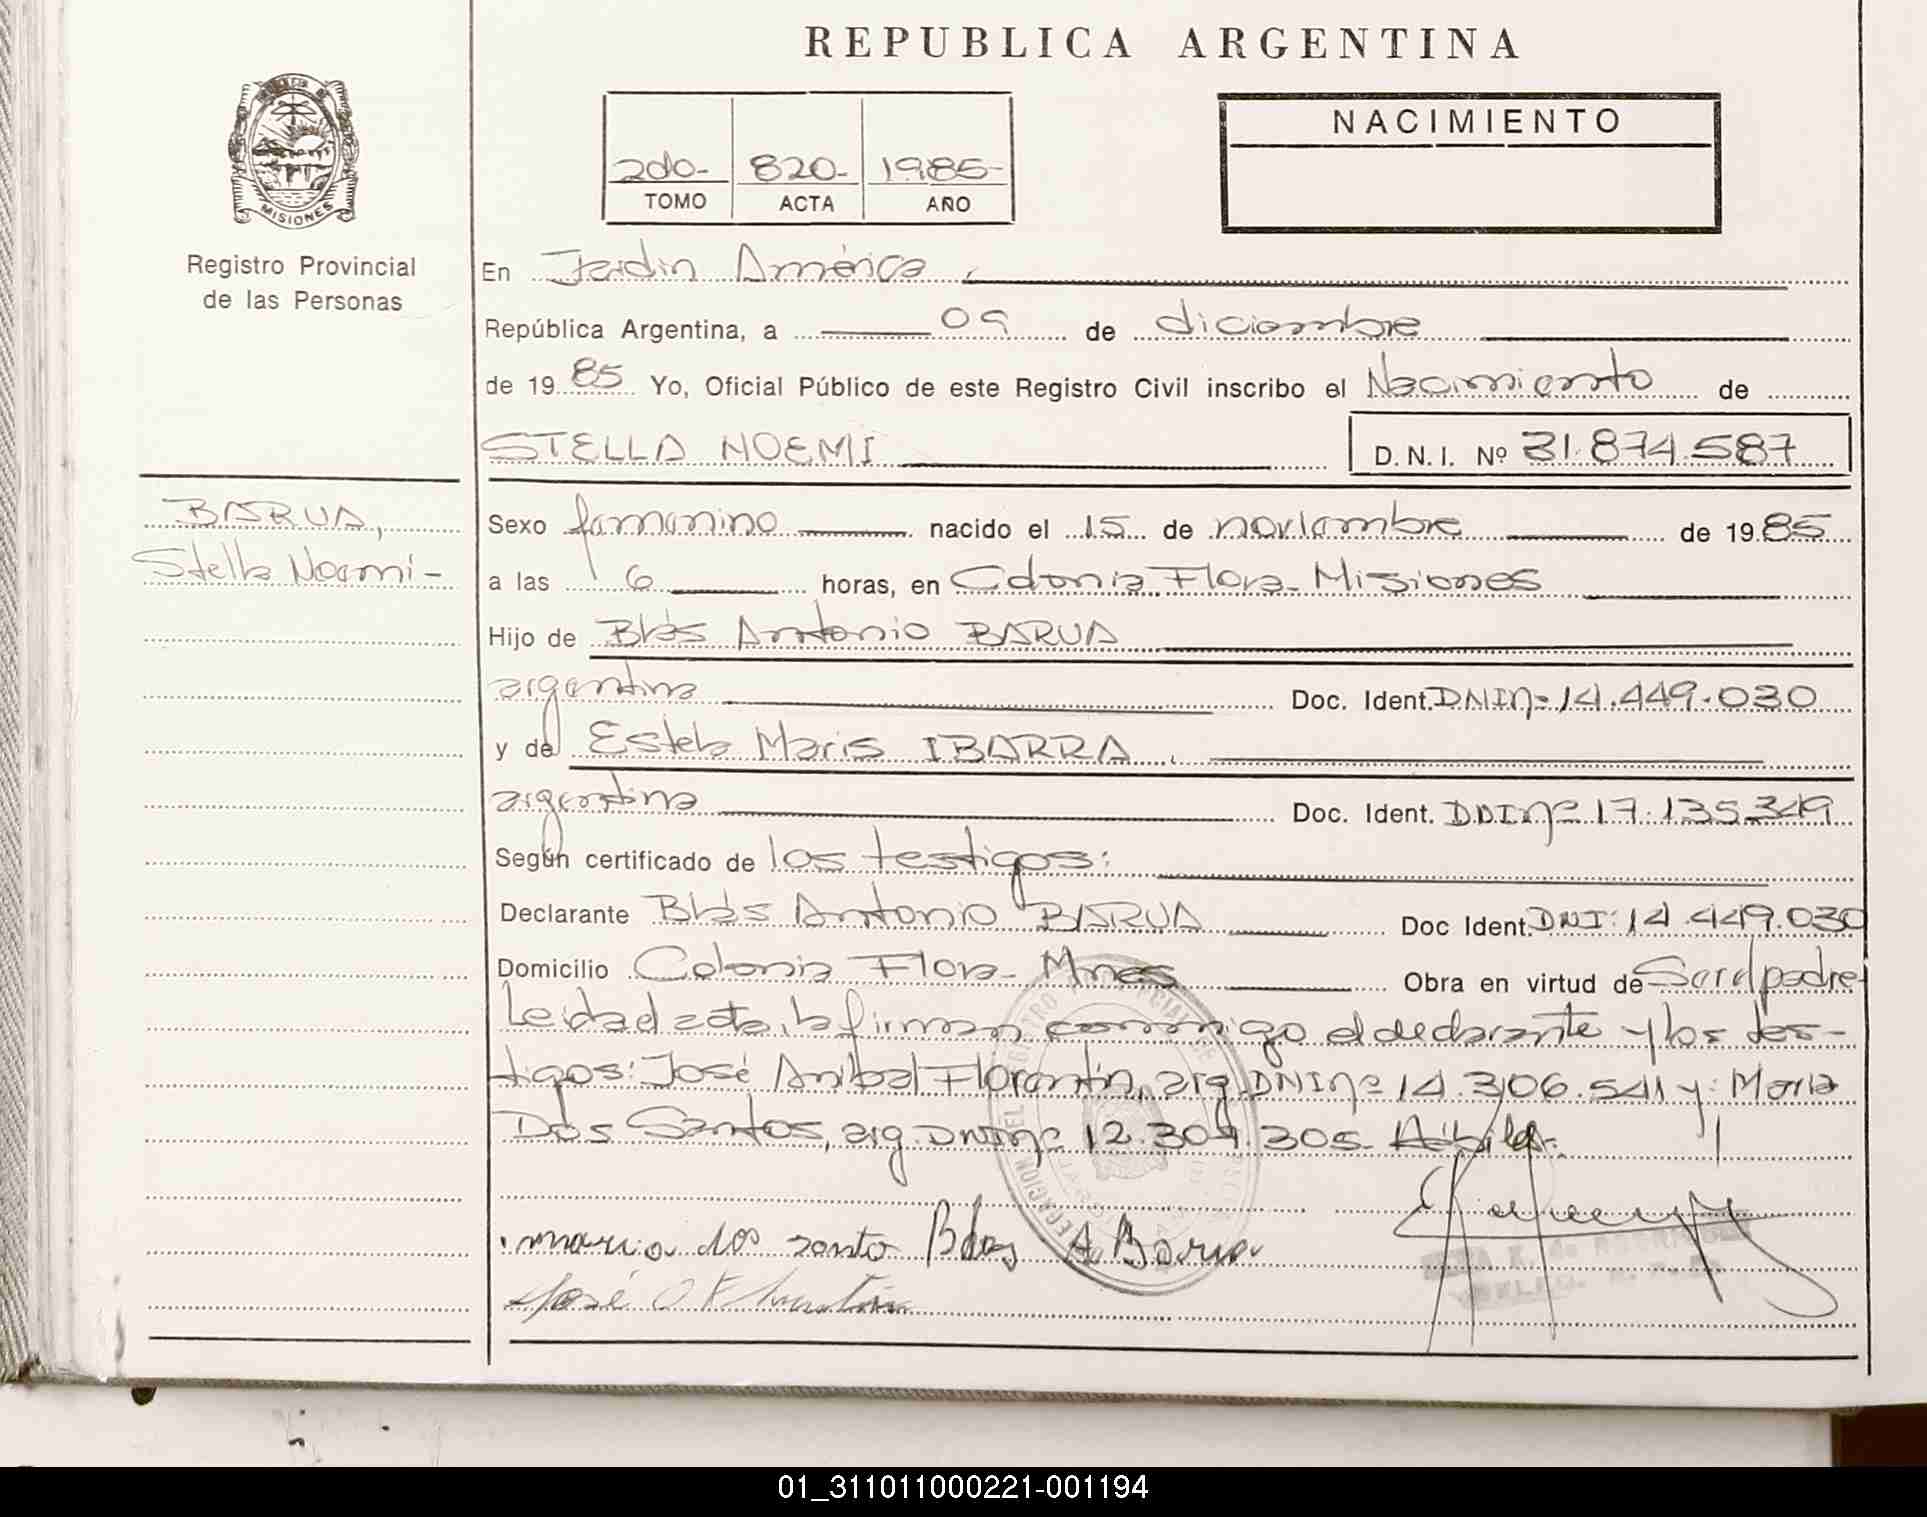 REPUBLICA ARGENTINA
MISIONES
Registro Provincial
de las Personas
2do- 820- 1985-
TOMO ACTA AÑO
NACIMIENTO
En Jardin América,
República Argentina, a 09 de diciembre
de 1985 Yo, Oficial Público de este Registro Civil inscribo el Nacimiento de
STELLA NOEMI D.N.I. Nº 31.874.587
BARUA,
Stella Noemi-
Sexo femenino nacido el 15 de noviembre de 1985
a las 6 horas, en Colonia Flora- Misiones
Hijo de Blás Antonio BARUA
argentina Doc. Ident. DNInº 14.449.030
y de Estela Maris IBARRA,
argentina Doc. Ident. DNInº 17.135.349
Según certificado de los testigos:
Declarante Blás Antonio BARUA Doc Ident. DNI: 14.449.030
Domicilio Colonia Flora- Mnes Obra en virtud de Ser el padre-
Leida el acta, la firman conmigo el declarante y los tes-
tigos: José Anibal Florentin, arg. DNInº 14.306.541 y: Maria
Dos Santos, arg. DNInº 12.304.305-
maria dos santo Blas A Barua
José
01_311011000221-001194